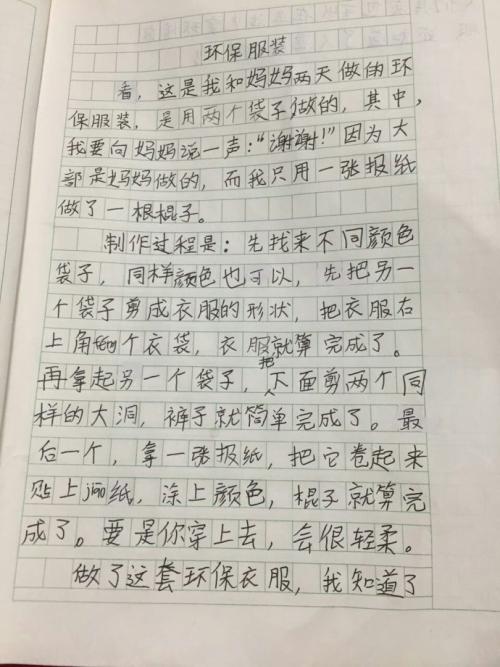 环保服装
看，这是我和妈妈两天做的环
保服装，是用两个袋子做的，其中，
我要向妈妈说一声："谢谢！"因为大
部是妈妈做的，而我只用一张报纸
做了一根棍子。
制作过程是：先找来不同颜色
袋子，同样颜色也可以，先把另一
个袋子剪成衣服的形状，把衣服右
上角feng个衣袋，衣服就算完成了。
再拿起另一个袋子，把下面剪两个同
样的大洞，裤子就简单完成了。最
后一个，拿一张报纸，把它卷起来
贴上jiao纸，涂上颜色，棍子就算完
成了。要是你穿上去，会很轻柔。
做了这套环保衣服，我知道了